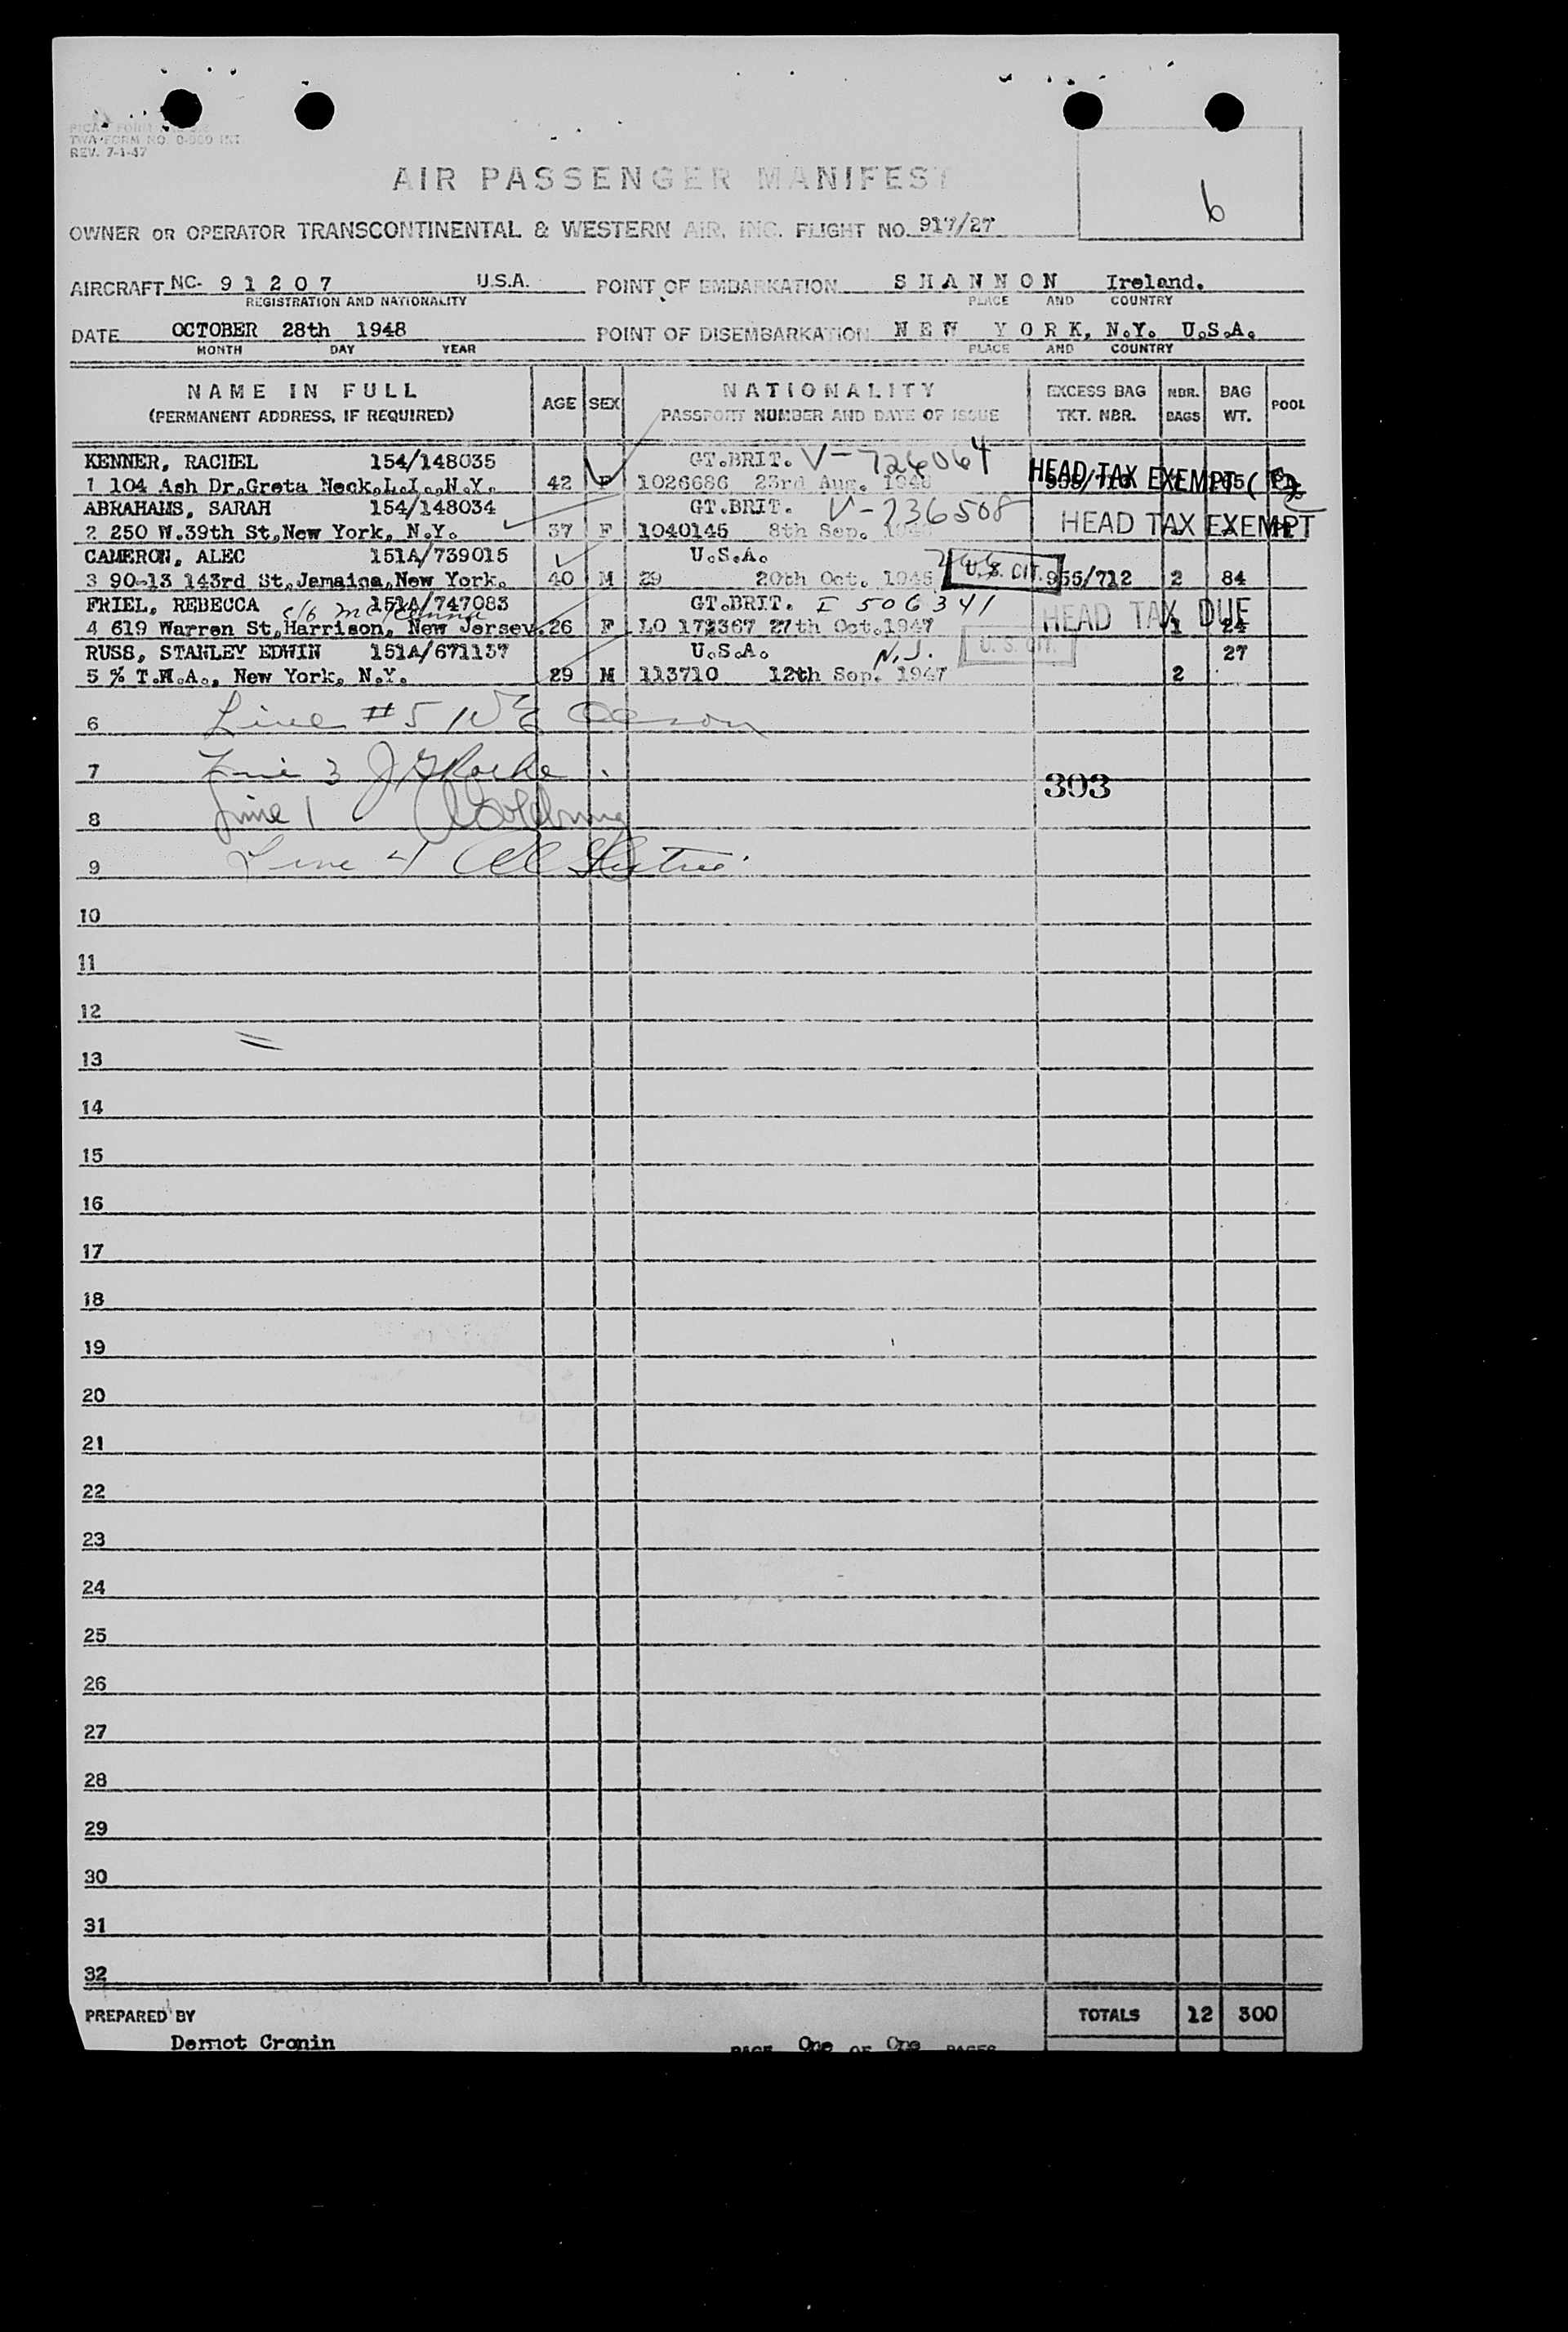 TWA FORM NO. 0-360 INT
REV. 7-1-47
AIR PASSENGER MANIFEST
6
OWNER OR OPERATOR TRANSCONTINENTAL & WESTERN AIR, INC. FLIGHT NO. 917/27
AIRCRAFT NC- 9 1 2 0 7 U.S.A. POINT OF EMBARKATION S H A N N O N Ireland.
REGISTRATION AND NATIONALITY PLACE AND COUNTRY
DATE OCTOBER 28th 1948 POINT OF DISEMBARKATION N E W Y O R K, N.Y. U.S.A.
MONTH DAY YEAR PLACE AND COUNTRY
NAME IN FULL AGE SEX NATIONALITY EXCESS BAG NBR. BAG POOL
(PERMANENT ADDRESS, IF REQUIRED) PASSPORT NUMBER AND DATE OF ISSUE TKT. NBR. BAGS WT.
KENNER, RACHEL 154/148035 GT.BRIT. V-726064 HEAD TAX EXEMPT
1 104 Ash Dr.Greta Neck,L.I.,N.Y. 42 F 1026686 23rd Aug. 1948
ABRAHAMS, SARAH 154/148034 GT.BRIT. V-736508
2 250 W.39th St,New York, N.Y. 37 F 1040145 8th Sep. HEAD TAX EXEMPT
CAMERON, ALEC 151A/739015 U.S.A.
3 90-13 143rd St,Jamaica,New York. 40 M 29 20th Oct. 1945 U.S. CIT. 955/712 2 84
FRIEL, REBECCA 151A/747083 GT.BRIT. I 506341 HEAD TAX DUE
c/o
4 619 Warren St,Harrison, New Jersey. 26 F LO 172367 27th Oct.1947 1 24
RUSS, STANLEY EDWIN 151A/671137 U.S.A. N.J. U.S. CIT. 27
5 % T.W.A., New York, N.Y. 29 M 113710 12th Sep. 1947 2
6 Line #5
7 Line 3
303
8 Line 1
9 Line 4
10
11
12
13
14
15
16
17
18
19
20
21
22
23
24
25
26
27
28
29
30
31
32
PREPARED BY TOTALS 12 300
Dermot Cronin PAGE One OF One PAGES